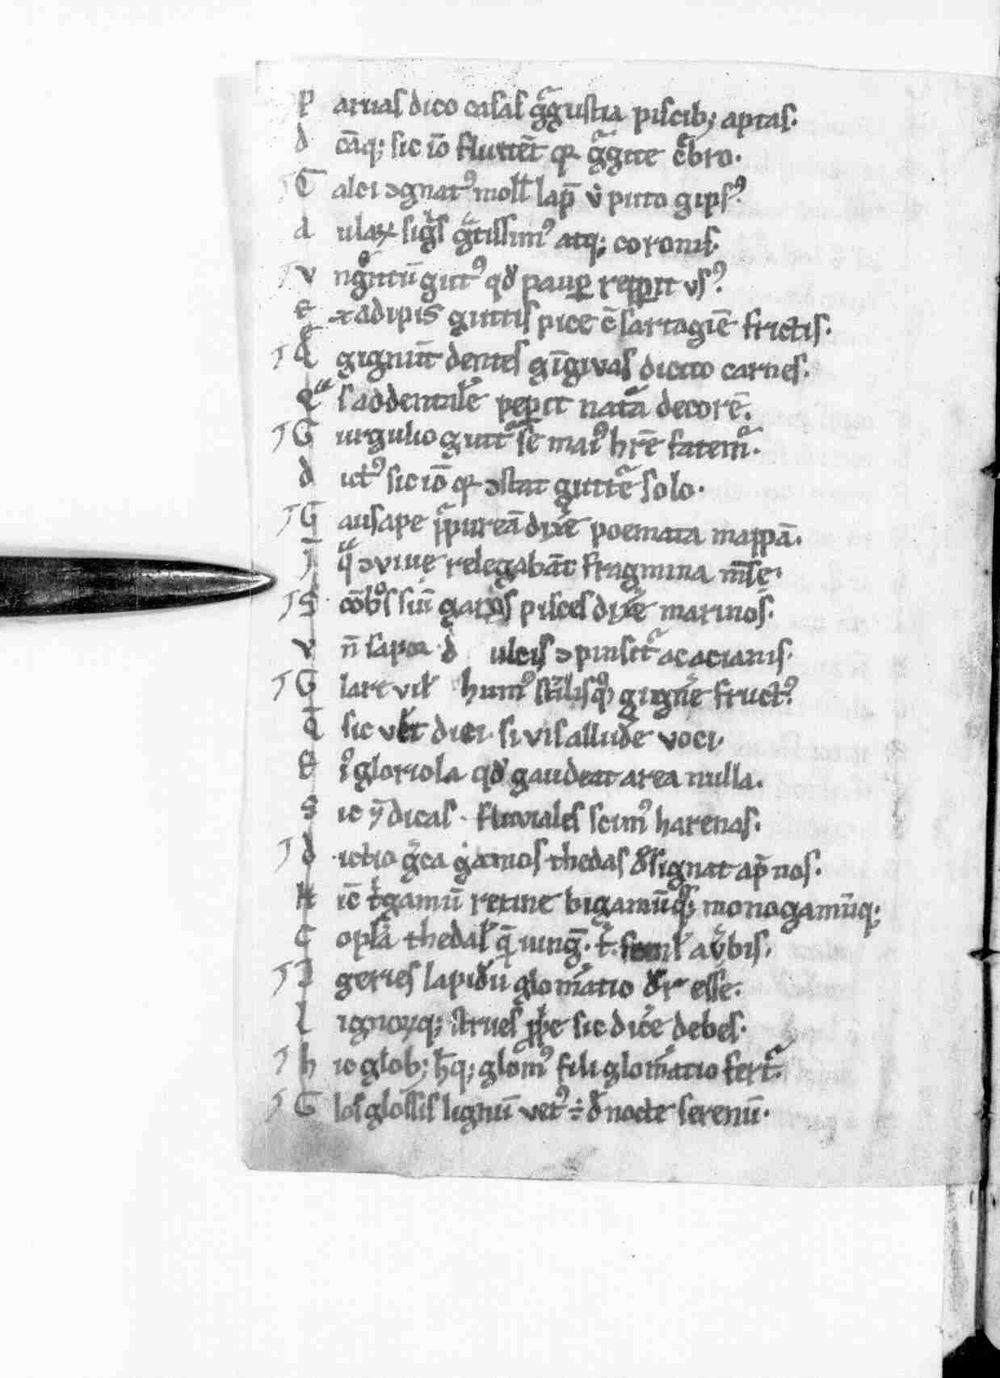 P aruas dico casas gͣgustia piscib; aptas.
d cāq; sic iō fluitēt qꝛ gͣgite cͣbro.
T alei ꝯgnatꝰ moll̄ lap̄ ł puto gipsꝰ.
a ulaꝝ sigͥs gͣtissimꝰ atq; coronis.
v ngͣntū gutꝰ qđ paup̱ rep̱it vsꝰ.
E x adipis guttis pice ē sartagiē frictis.
Q gignūt dentes gīgivas dicito carnes.
Q s ad dentalē pep̱it natͣā decorē.
G urgulio guttͣ sē maiꝰ hr̄e fatemͬ.
d ictꝰ sic iō qꝛ ꝯstat guttͣe solo.
G ausape pͣpureā dix̄e poemata mappā.
I qͣ ꝯviue relegabāt fragmina m̄se.
S cōbͦs siū garꝰs pisces dix̄e marinos.
v n̄ sapor d ulcis ꝯpinsitͬ acacianis.
G lare vil̄ humꝰ st̄ilisqꝫ gignͤe fruct.ꝰ
Q sic vͭt dici. si vis alludͤe voci.
E iͥ gloriola qđ gaudeat area nulla.
S ic ẏ dicas. fluviales scimꝰ harenas.
d ictio gͣca gamos thedas dͤsignat ap̄ nos.
H ic̄ tͥgamū retine bigamūqꝫ monogamūq;
C opl̄a thedal̄ q̄ iung̃. ł. similͥ aͮbis.
I geries lapidū glom̄atio dͬr esse.
L ignoꝝq; strues ꝓpͥe sic dic̄e debes.
h ic glob; h̄q; glomꝰ fili glom̄atio fertͬ.
G los glossis lignū vetꝰ ÷ đ nocte serenū.